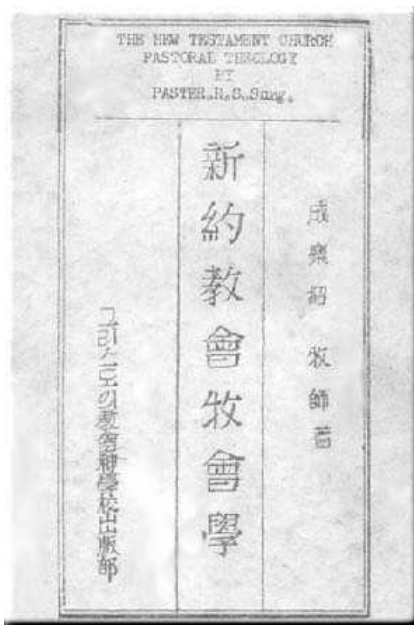 THE NEW TESTAMENT CHURCH
PASTORAL THEOLOGY
BY
PASTER.R.S.Sung.
成樂紹 牧師著
新約教會牧會學
그리스도의教會神學校出版部